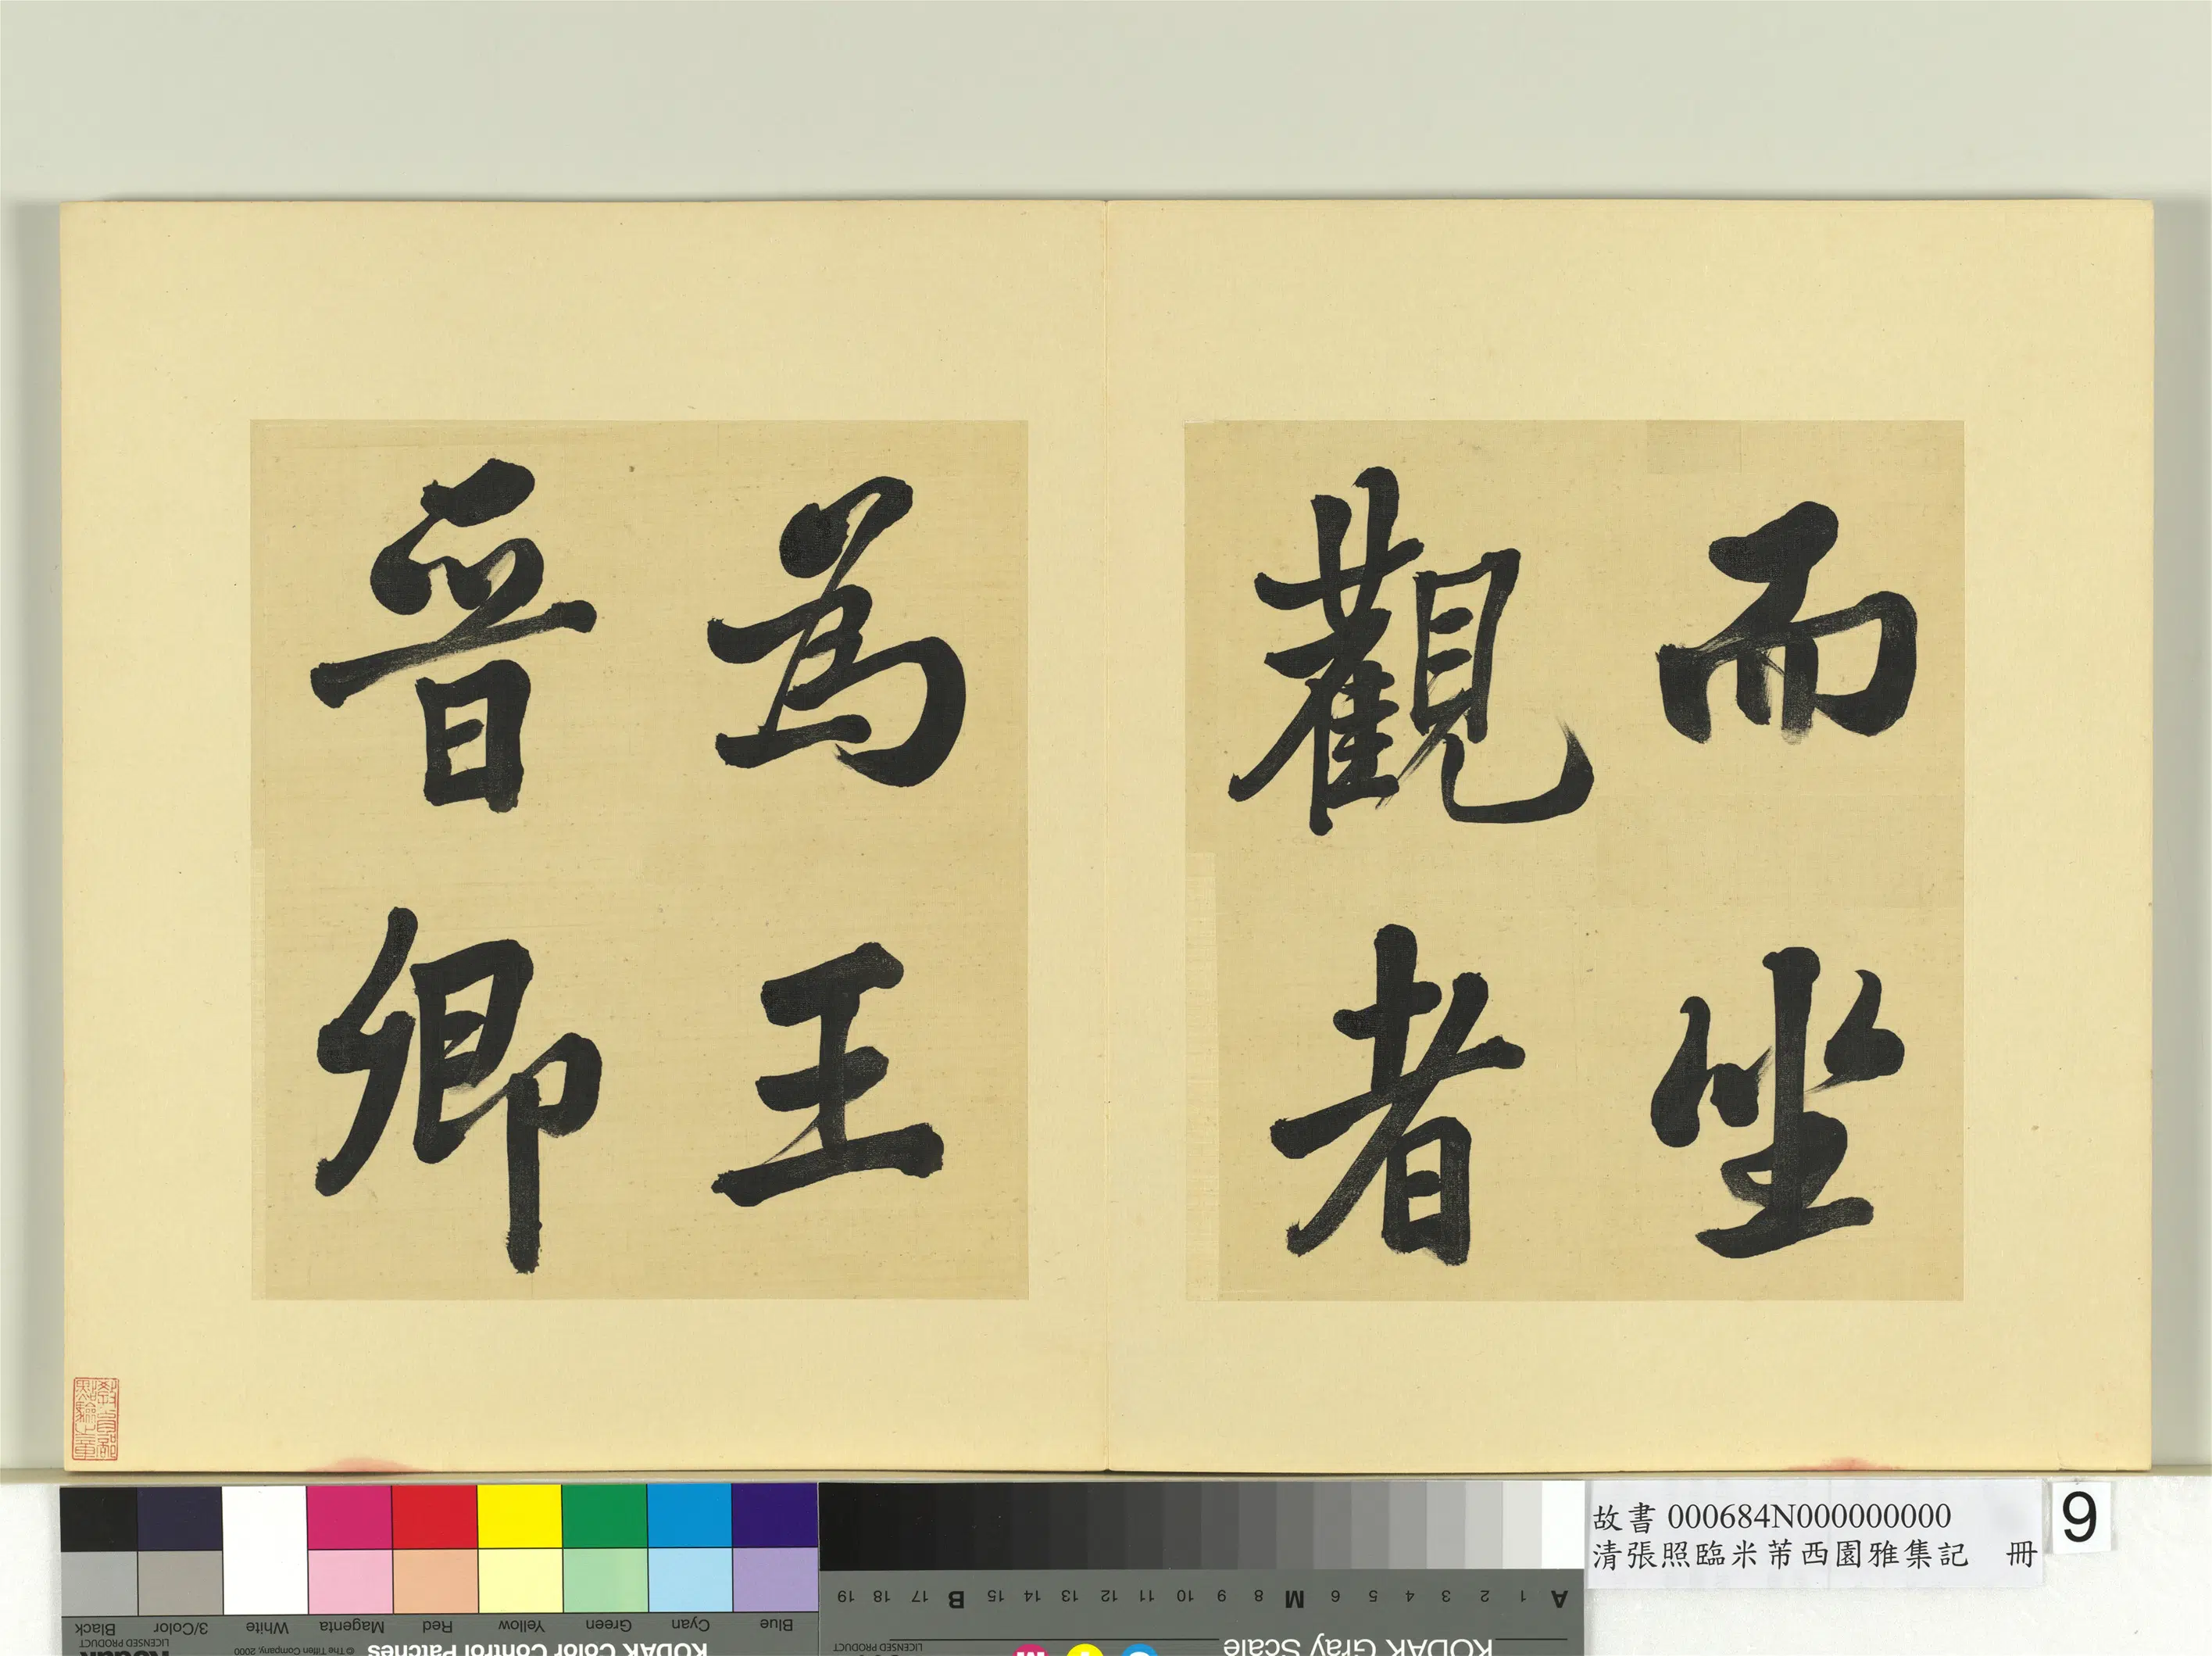 而坐
觀者
為王
晉卿
教育部
點驗之章
故書 000684N000000000
清張照臨米芾西園雅集記 冊
9
Black 3/Color White Magenta Red Yellow Green Cyan Blue
LICENSED PRODUCT
© The Tiffen Company, 2000
KODAK Color Control Patches
Kodak
A 1 2 3 4 5 6 M 8 9 10 11 12 13 14 15 B 17 18 19
KODAK Gray Scale
LICENSED PRODUCT
C Y M